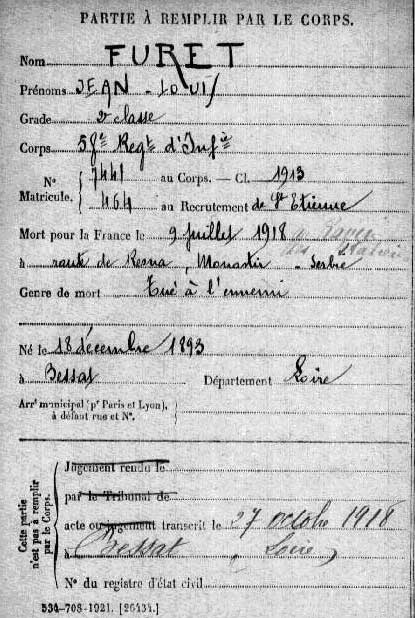 PARTIE À REMPLIR PAR LE CORPS.
Nom FURET
Prénoms JEAN-LOUIS
Grade 2e classe
Corps 58e Regt d'Infie
N° Matricule. 7441 au Corps. — Cl. 1913
464 au Recrutement de St Etienne
Mort pour la France le 9 juillet 1918
à route de Resna, Monastir - Serbie
Genre de mort Tué à l'ennemi
Né le 18 décembre 1893
à Bessat Département Loire
Arrt municipal (pr Paris et Lyon),
à défaut rue et N°.
Cette partie n'est pas à remplir par le Corps.
Jugement rendu le
par le Tribunal de
acte ou jugement transcrit le 27 octobre 1918
à Bessat, Loire
N° du registre d'état civil
534-708-1921. [26434.]